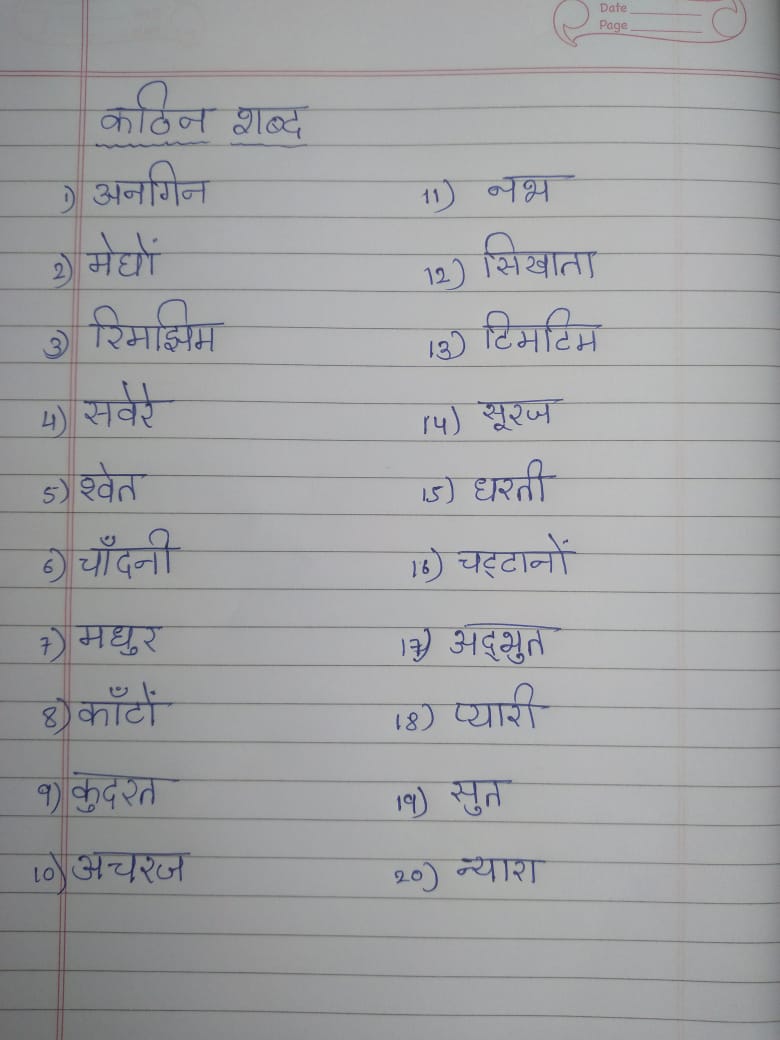 Date
Page
कठिन शब्द
1) अनगिन
2) मेघों
3) रिमझिम
4) सवेरे
5) श्वेत
6) चाँदनी
7) मधुर
8) काँटों
9) कुदरत
10) अचरज
11) नभ
12) सिखाता
13) टिमटिम
14) सूरज
15) धरती
16) चट्टानों
17) अद्भुत
18) प्यारी
19) सुत
20) न्यारा